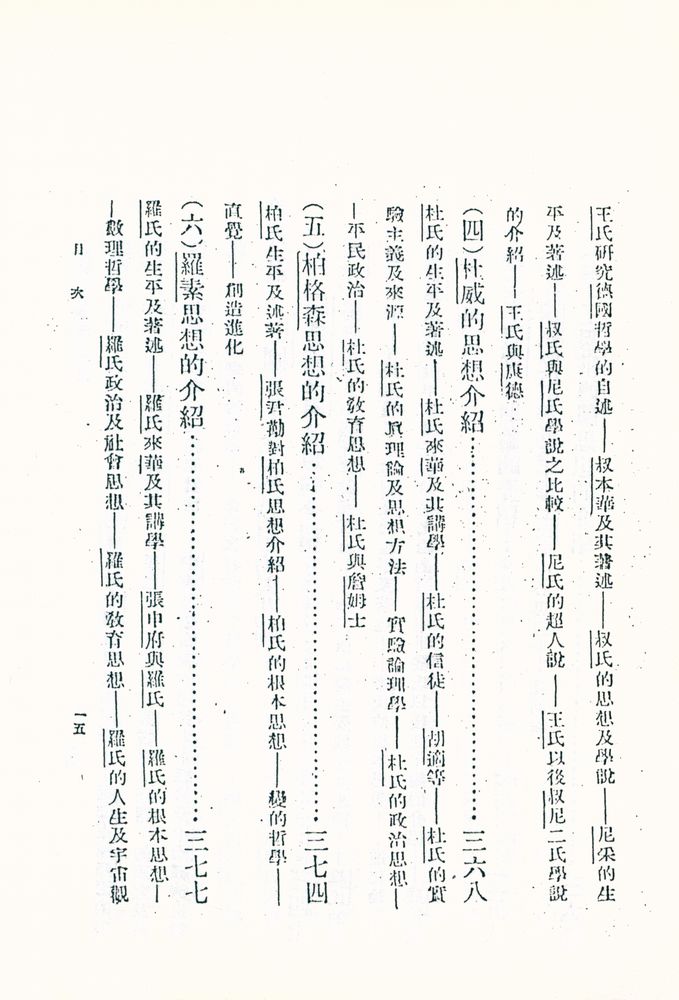 王氏研究德國哲學的自述——叔本華及其著述——叔氏的思想及學說——尼采的生
平及著述——叔氏與尼氏學說之比較——尼氏的超人說——王氏以後叔尼二氏學說
的介紹——王氏與康德
(四)杜威的思想介紹……………………………三六八
杜氏的生平及著述——杜氏來華及其講學——杜氏的信徒——胡適等——杜氏的實
驗主義及來源——杜氏的眞理論及思想方法——實驗論理學——杜氏的政治思想—
—平民政治——杜氏的敎育思想——杜氏與詹姆士
(五)柏格森思想的介紹……………………………三七四
柏氏生平及述著——張君勱對柏氏思想介紹——柏氏的根本思想——變的哲學——
直覺——創造進化
(六)羅素思想的介紹……………………………三七七
羅氏的生平及著述——羅氏來華及其講學——張申府與羅氏——羅氏的根本思想—
—數理哲學——羅氏政治及社會思想——羅氏的敎育思想——羅氏的人生及宇宙觀
目次
一五